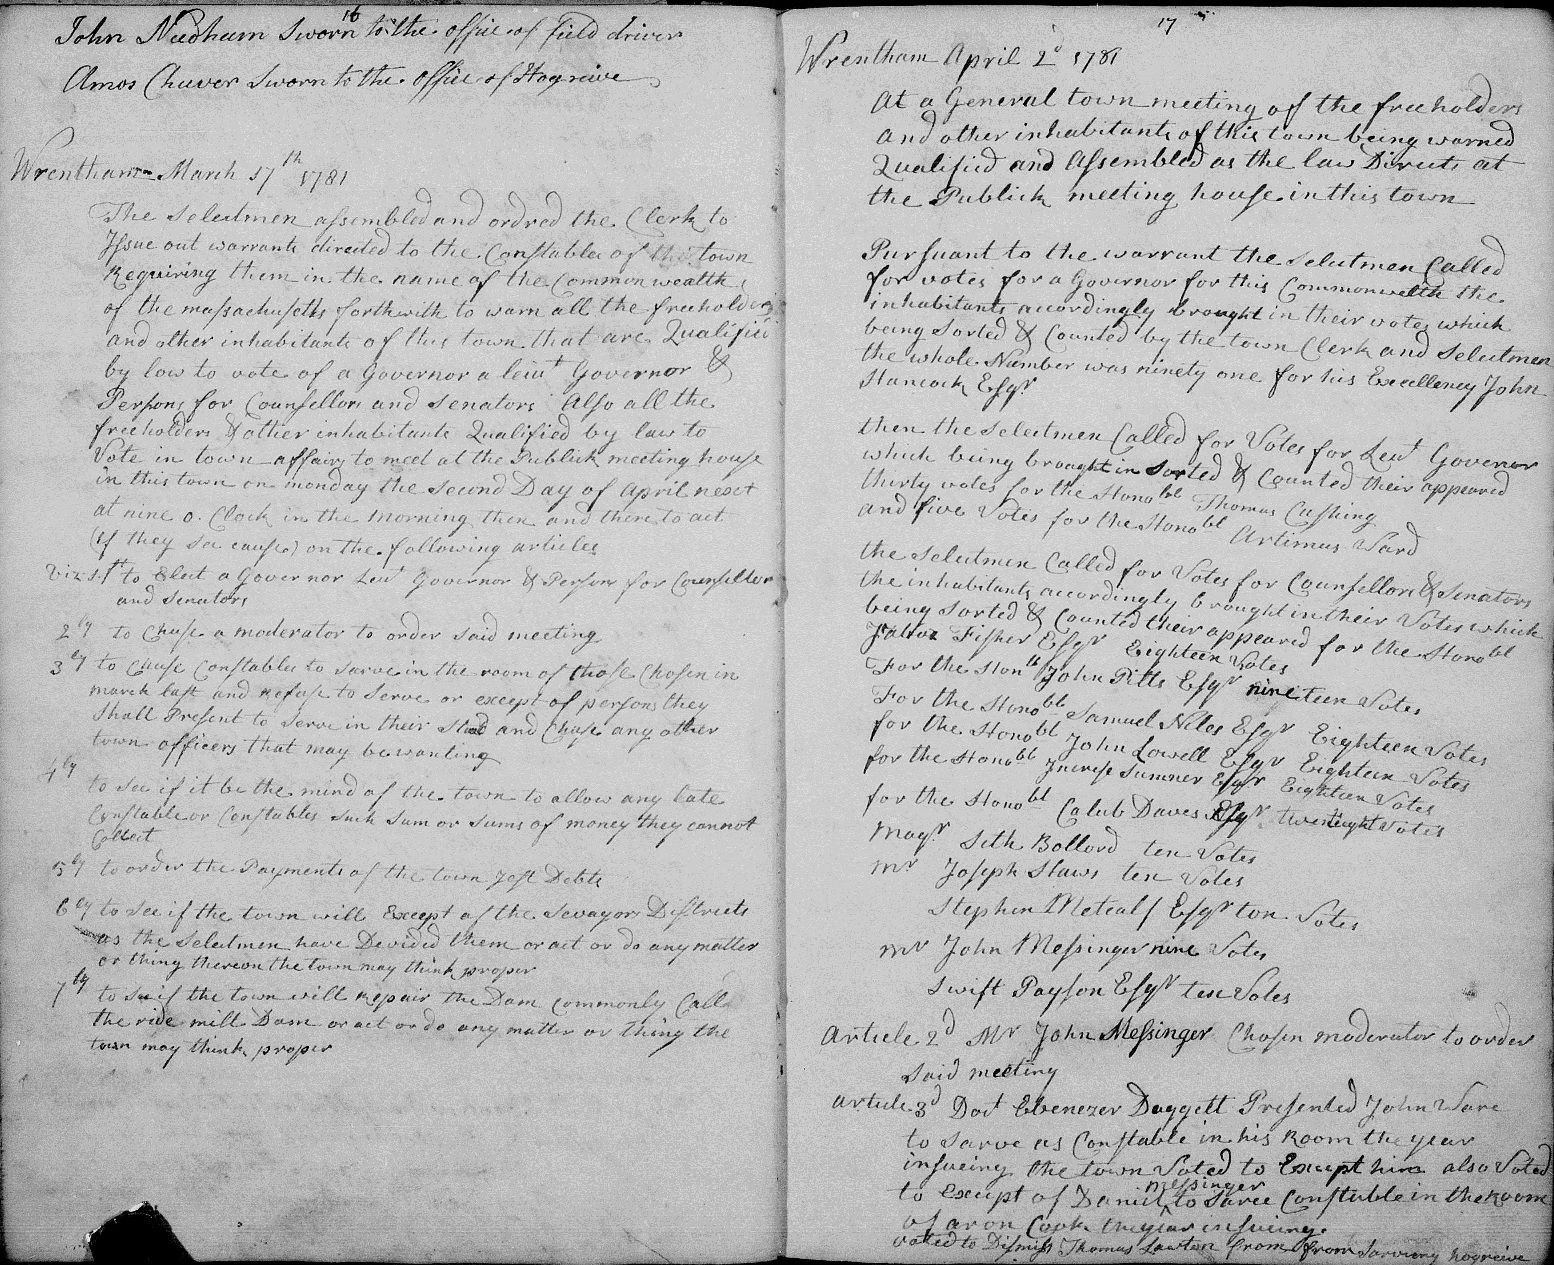 16
John Needham Sworn to the office of field driver
Amos Cheever Sworn to the office of Hogreive
Wrentham March 17th 1781
The Selectmen assembled and ordred the Clerk to
Issue out warrants directed to the Constables of the town
Requiring them in the name of the Common wealth
of the massachusetts forthwith to warn all the freeholders
and other inhabitants of this town that are Qualified
by law to vote of a Governor a leiut Governor &
Persons for Counsellors and Senators Also all the
freeholders & other inhabitants Qualified by law to
Vote in town affairs to meet at the Publick meeting house
in this town on monday the Second Day of April next
at nine o. Clock in the morning then and there to act
(if they see cause) on the following articles
viz 1st to Elect a Governor Leut Governor & Persons for Counsellor
and Senators
2ly to Chuse a moderator to order said meeting
3ly to Chuse Constables to sarve in the room of those Chosen in
march last and Refuse to Serve or except of persons they
Shall Present to Serve in their Stead and Chuse any other
town officers that may be wanting
4ly
to see if it be the mind of the town to allow any late
Constable or Constables such Sum or Sums of money they cannot
Collect
5ly to order the Payments of the town Just Debts
6ly to see if the town will Except of the Sevayors Districts
as the Selectmen have Devided them or act or do any matter
or thing thereon the town may think proper
7ly to see if the town will Repair the Dam commonly Calld
the ride mill Dam or act or do any matter or thing the
town may think proper
17
Wrentham April 2d 1781
At a General town meeting of the freeholders
and other inhabitants of this town being warned
Qualified and Assembled as the law Directs at
the Publick meeting house in this town
Pursuant to the warrant the Selectmen Called
for votes for a Governor for this Commonwelth the
inhabitants accordingly brought in their votes which
being Sorted & Counted by the town Clerk and Selectmen
the whole Number was ninety one for his Excellency John
Hancock Esqr
then the Selectmen Called for Votes for Leut Governor
which being brought in Sorted & Counted their appeared
thirty votes for the Honobl Thomas Cushing
and five Votes for the Honobl Artimus Ward
the Selectmen Called for Votes for Counsellors & Senators
the inhabitants accordingly brought in their Votes which
being Sorted & Counted their appeared for the Honobl
Jabez Fisher Esqr Eighteen Votes
For the Honbl John Pitts Esqr nineteen Votes
For the Honobl Samuel Niles Esqr Eighteen Votes
for the Honobl John Lowell Esqr Eighteen Votes
for the Honobl Increse Sumner Esqr Eighteen Votes
for the Honobl Calub Daves Esqr twentieight Votes
Majr Seth Bollord ten Votes
Mr Joseph Haws ten Votes
Stephen Metcalf Esqr ten Votes
Mr John Messinger nine Votes
Swift Payson Esqr ten Votes
Article 2d Mr John Messinger Chosen moderator to order
said meeting
article 3d Doct Ebenezer Daggett Presented John Ware
to sarve as Constable in his Room the year
insueing the town Voted to Except him also Voted
messinger
to Except of Daniel to Sarve Constable in the Room
of aron Cook the year insueing.
voted to Dismiss Thomas Lawton from from Sarving hogreive